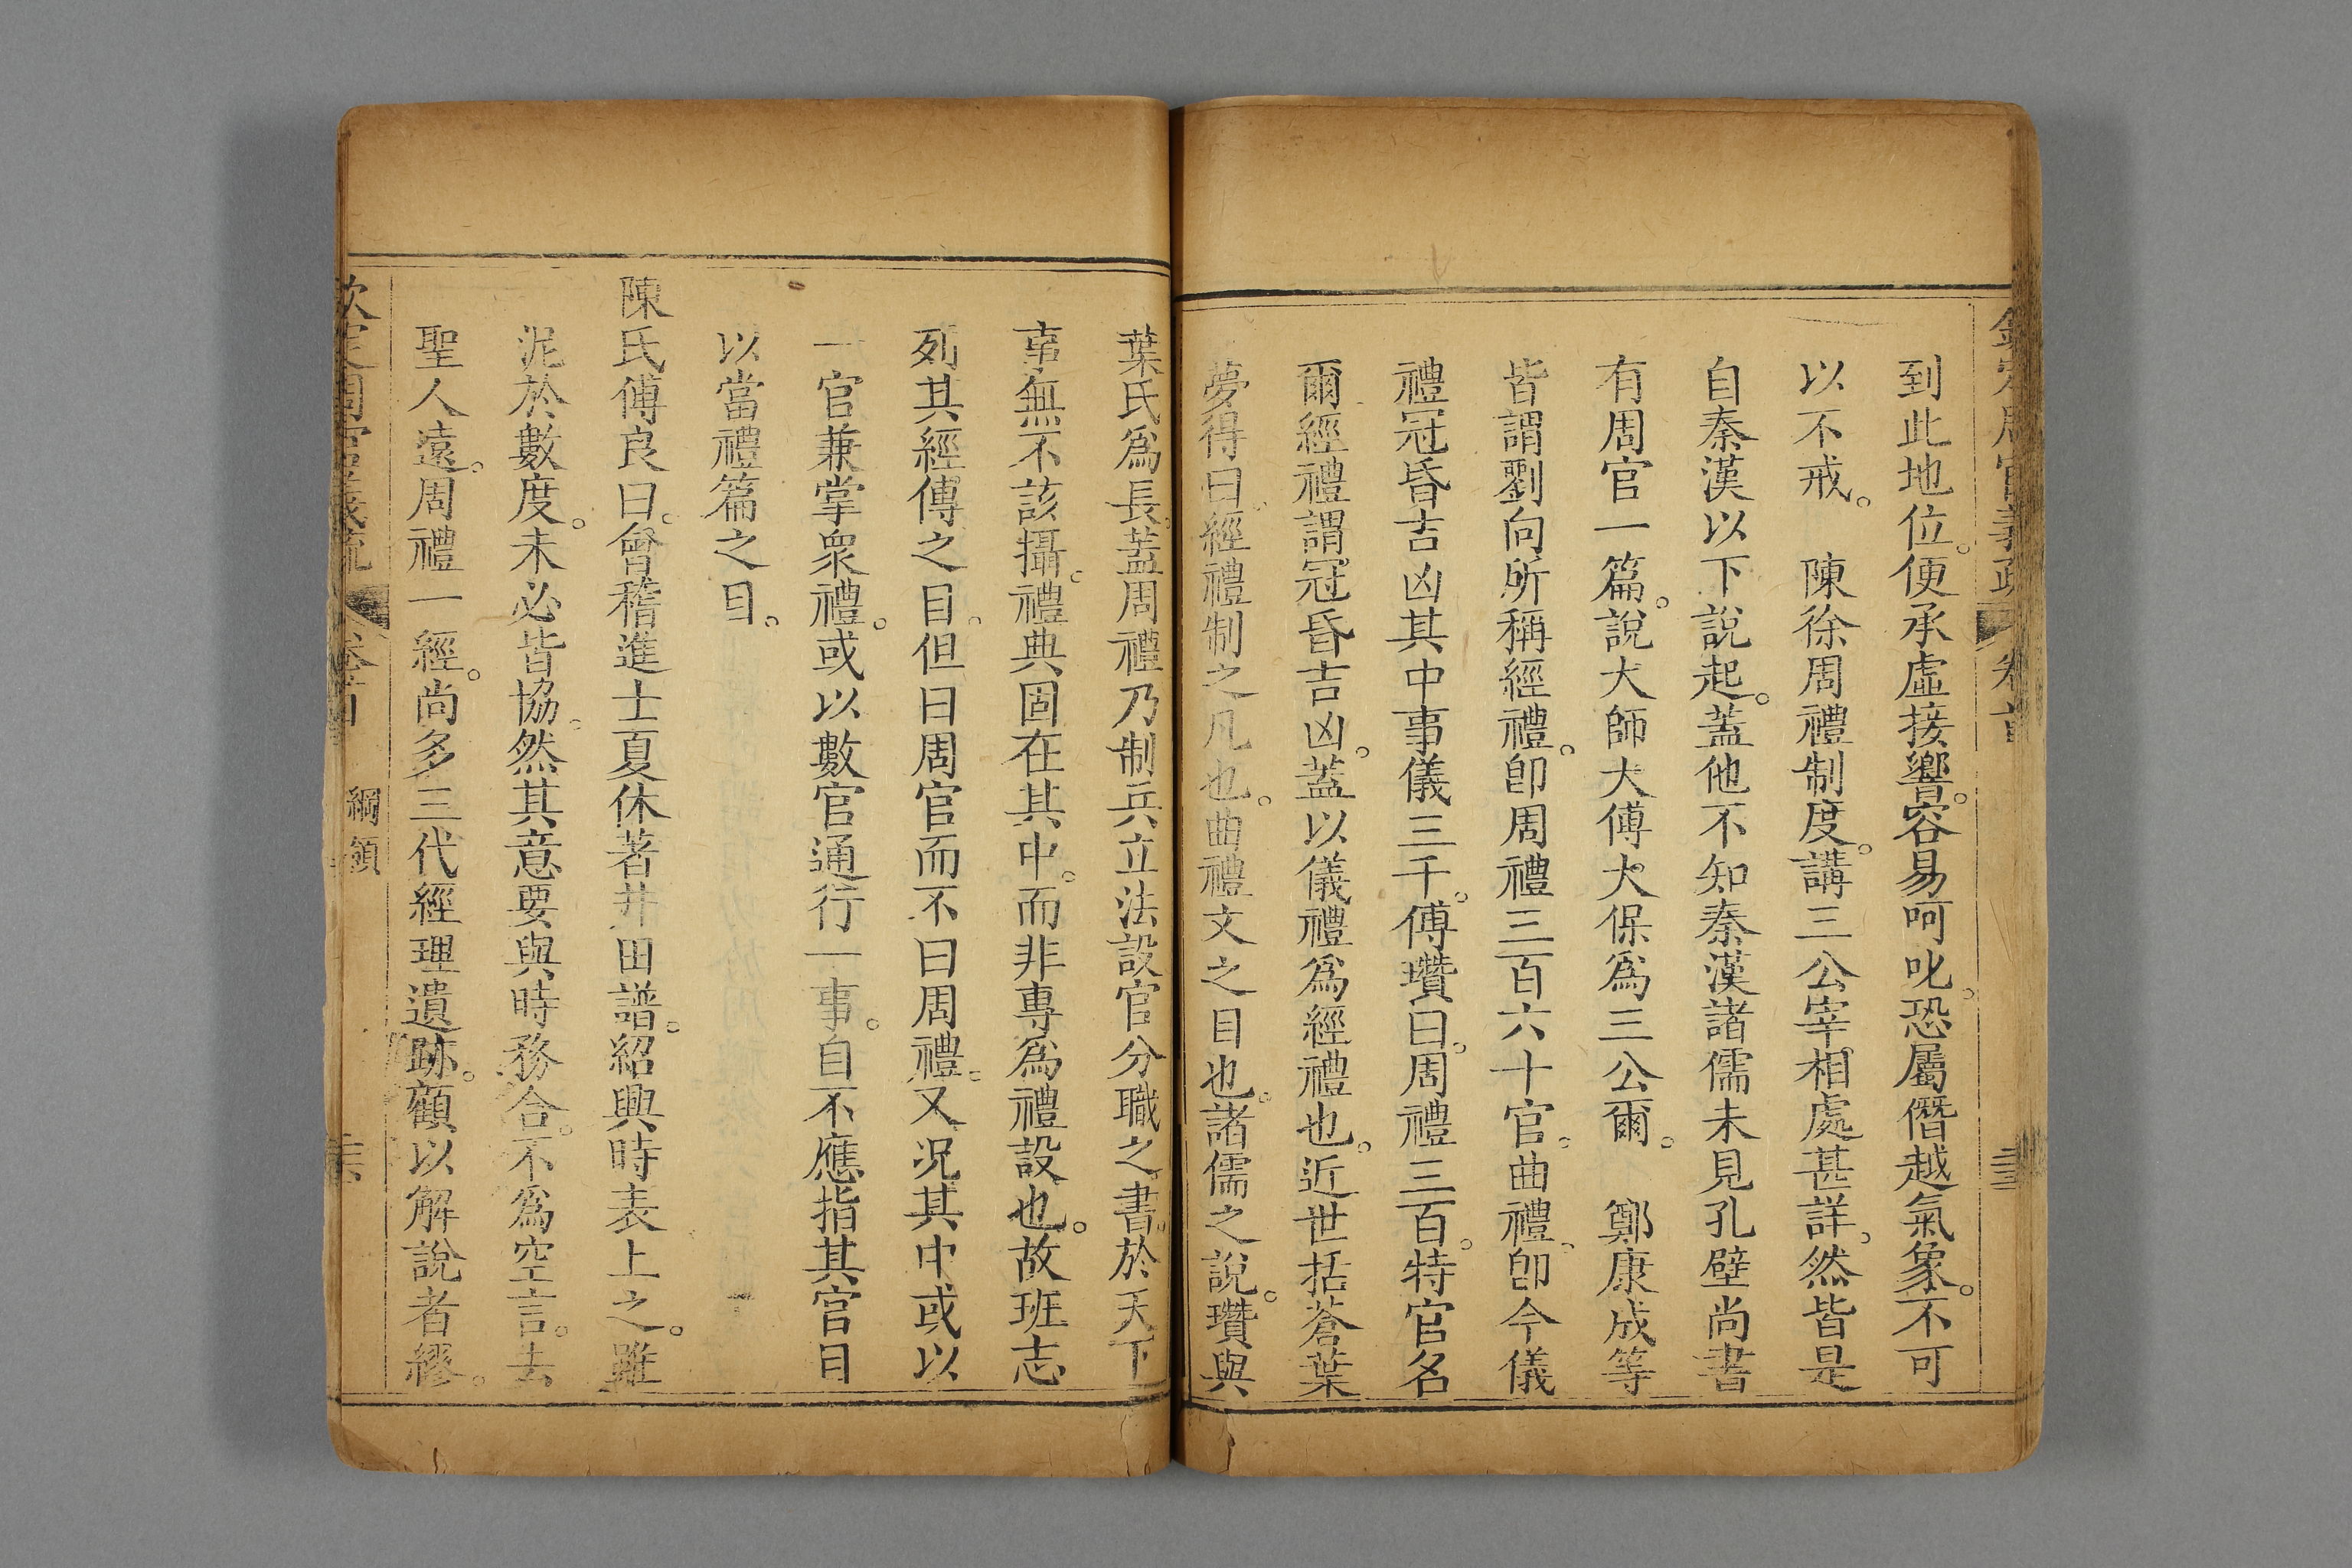 欽定周官義疏 卷首
到此地位。便承虛接響。容易呵叱。恐屬僭越氣象。不可
以不戒。 陳徐周禮制度。講三公宰相處甚詳。然皆是
自秦漢以下說起。蓋他不知秦漢諸儒未見孔壁尚書
有周官一篇。說大師大傅大保爲三公爾。 鄭康成等
皆謂劉向所稱經禮。卽周禮三百六十官。曲禮。卽今儀
禮冠昏吉凶其中事儀三千。傅瓚曰。周禮三百。特官名
爾經禮謂冠昏吉凶。蓋以儀禮爲經禮也。近世括蒼葉
夢得曰。經禮制之凡也。曲禮文之目也。諸儒之說。瓚與
葉氏爲長。蓋周禮乃制兵立法設官分職之書。於天下
事無不該攝。禮典固在其中。而非專爲禮設也。故班志
列其經傳之目。但曰周官而不曰周禮。又況其中或以
一官兼掌衆禮。或以數官通行一事。自不應指其官目
以當禮篇之目。
陳氏傅良曰。會稽進士夏休著井田譜。紹興時表上之。雖
泥於數度。未必皆協。然其意要與時務合。不爲空言。去
聖人遠。周禮一經。尚多三代經理遺跡。顧以解說者繆。
欽定周官義疏 卷首 綱領